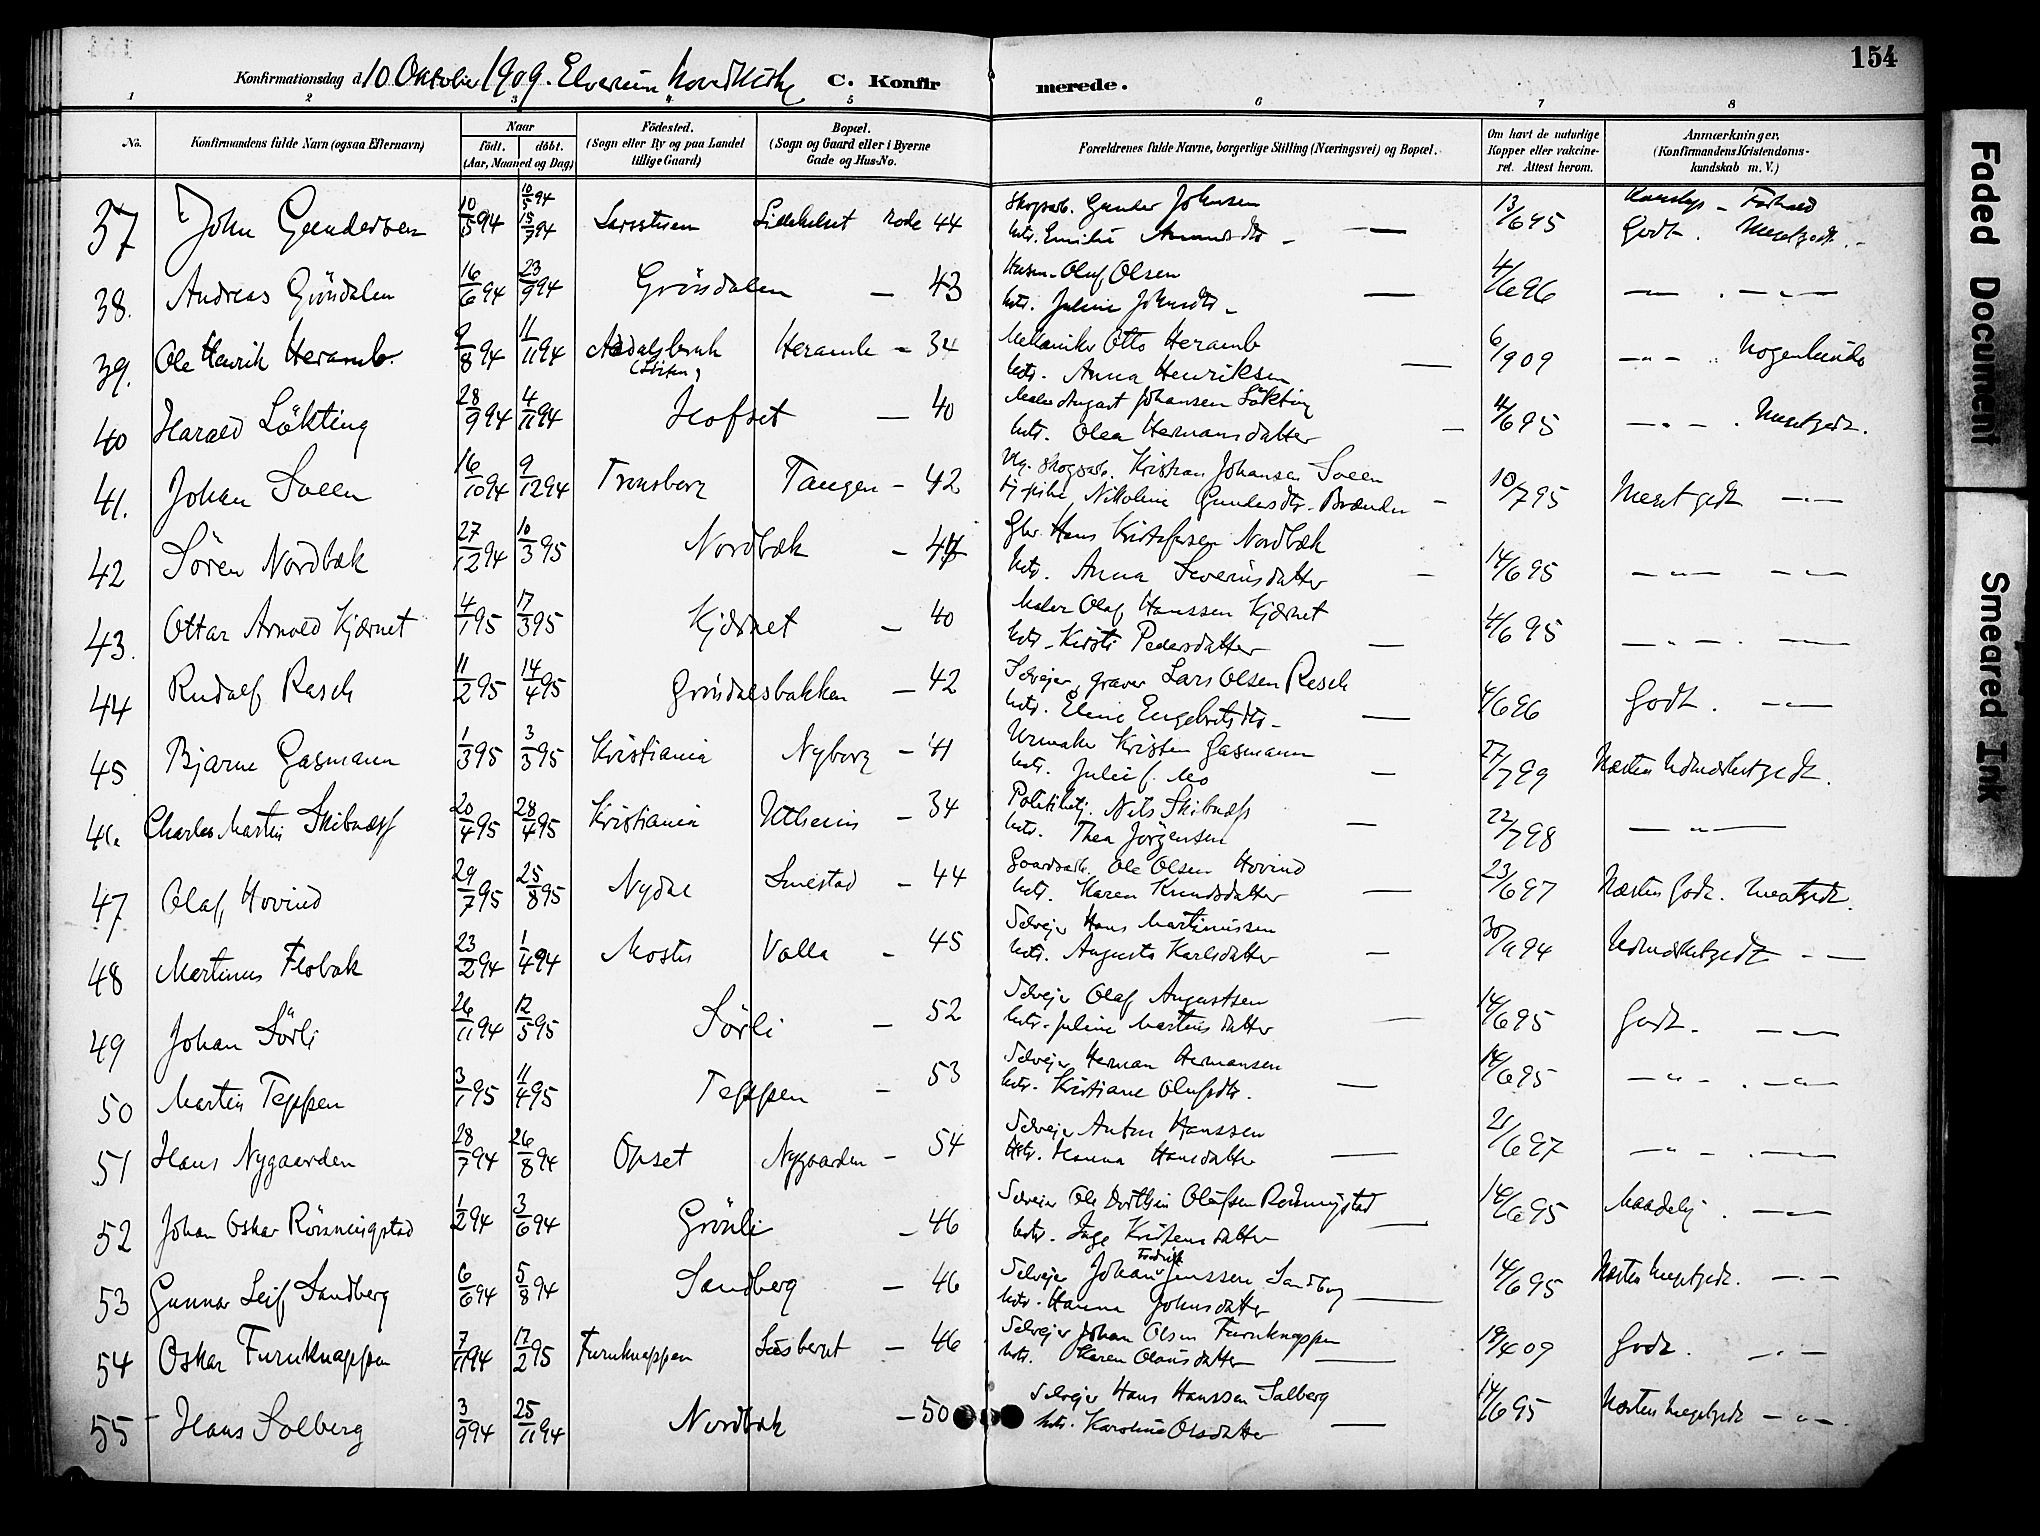 154
Konfirmationsdag d. 10 Oktober 1909. Elverum Hovedkirke C. Konfirmerede.
1 2 3 4 5 6 7 8
No. Konfirmandens fulde Navn (ogsaa Efternavn) Naar Födt. döbt. (Aar, Maaned og Dag) Födested. (Sogn eller By og paa Landet tillige Gaard) Bopæl. (Sogn og Gaard eller i Byerne Gade og Hus-No. Forældrenes fulde Navne, borgerlige Stilling (Næringsvei) og Bopæl. Om havt de naturlige Kopper eller vakcineret. Attest herom. Anmærkninger. (Konfirmandens Kristendomskundskab m. V.)
Kundsk. - Forhold
37 John Gundersen 10/5 94 10/5 94 15/7 94 rode 44 Skogsarb. Gunder Johnsen
hstr. Emilie Amundsdtr - 13/6 95 Godt. Megetgodt.
38. Andreas Gröndalen 16/6 94 23/9 94 Gröndalen - 43 Husm. Oluf Olsen
hstr. Juline Johnsdtr - 4/6 96 - " - . - " -
39. Ole Henrik Heramb 9/8 94 11/11 94 Aadalsbruk (Löiten) Heramb - 34 Mekaniker Otto Heramb
hstr. Anna Henriksen 6/9 09 - " - . Nogenlunde
40 Harald Läkting 28/9 94 4/11 94 Hofset - 40 Maler August Johansen Läkting
hstr. Olea Hermansdatter 4/6 95 - " - . Megetgodt.
41. Johan Sveen 16/10 94 9/12 94 Tronsberg Tangen - 42 Ug. Skogsarb. Kristian Johansen Sveen
og pike Nikoline Gundersdtr. Brænden - 10/7 95 Megetgodt - " -
42 Sören Nordbæk 27/12 94 10/3 95 Nordbæk - Gbr. Hans Kristofersen Nordbæk
hstr. Anna Severinsdatter - 14/6 95 - " - - " -
43. Ottar Arnold Kjærnet 4/1 95 17/3 95 Kjærnet - 40 Maler Olaf Hanssen Kjærnet
hstr. Kirsti Pedersdatter - 4/6 95 - " - . - " -
44 Rudolf Rasch 11/2 95 14/4 95 Gröndalsbakken - 42 Selveier, graver Lars Olsen Resch
hstr. Eline Engebretsdtr - 4/6 96 Godt. - " -
45 Bjarne Gasmann 1/3 95 3/3 95 Kristiania Nyborg - 41 Urmaker Kristen Gasmann
hstr. Julie f. Mo - 27/7 99 Næsten Udmerketgodt.
46. Charles Martin Skibnæss 20/4 95 28/4 95 Kristiania Utheim - 34 Politibetj. Nils Skibnæss
hstr. Thea Jörgensen - 22/7 98 - " -
47 Olaf Hovind 29/7 95 25/8 95 Nydal Smestad - 44 Gaardsarb. Ole Olsen Hovind
hstr. Karen Knudsdatter - 23/6 97 Næsten Godt. Megetgodt.
48 Martinus Flobak 23/2 94 1/4 94 Valla - 45 Selveier Hans Martinussen
hstr. Augusta Karlsdatter - 30/11 94 Udmerketgodt - " -
49 Johan Sörli 26/11 94 12/5 95 Sörli - 52 Selveier Olaf Augustsen
hstr. Juline Martinsdatter - 14/6 95 Godt. - " -
50 Martin Teppen 3/1 95 11/4 95 Teppen - 53 Selveier Herman Hermansen
hstr. Kristiane Olufsdtr. - 14/6 95 - " - . - " -
51 Hans Nygaarden 28/7 94 26/8 94 Opset Nygaarden - 54 Selveier Anton Hanssen
hstr. Hanna Hansdatter - 21/6 97 - " - . - " -
52 Johan Oskar Rönningstad 1/2 94 3/6 94 Grönli - 46 Selveier Ole Olafsen Rönningstad
hstr. Inge Kristensdatter - 14/6 95 Maadelig. - " -
53 Gunnar Leif Sandberg 6/6 94 5/8 94 Sandberg - 46 Selveier Johan Fredrik Jenssen Sandberg
hstr. Hanna Johnsdatter - 14/6 95 Næsten Megetgodt. - " -
54 Oskar Furuknappen 7/11 94 17/2 95 Furuknappen - 46 Selveier Johan Olsen Furuknappen
hstr. Karen Olausdatter - 19/4 09 Godt. - " -
55 Hans Solberg 3/9 94 25/11 94 Nordbæk - 50 Selveier Hans Hanssen Solberg
hstr. Karoline Olsdatter - 14/6 95 Næsten Megetgodt - " -
Faded Document
Smeared Ink